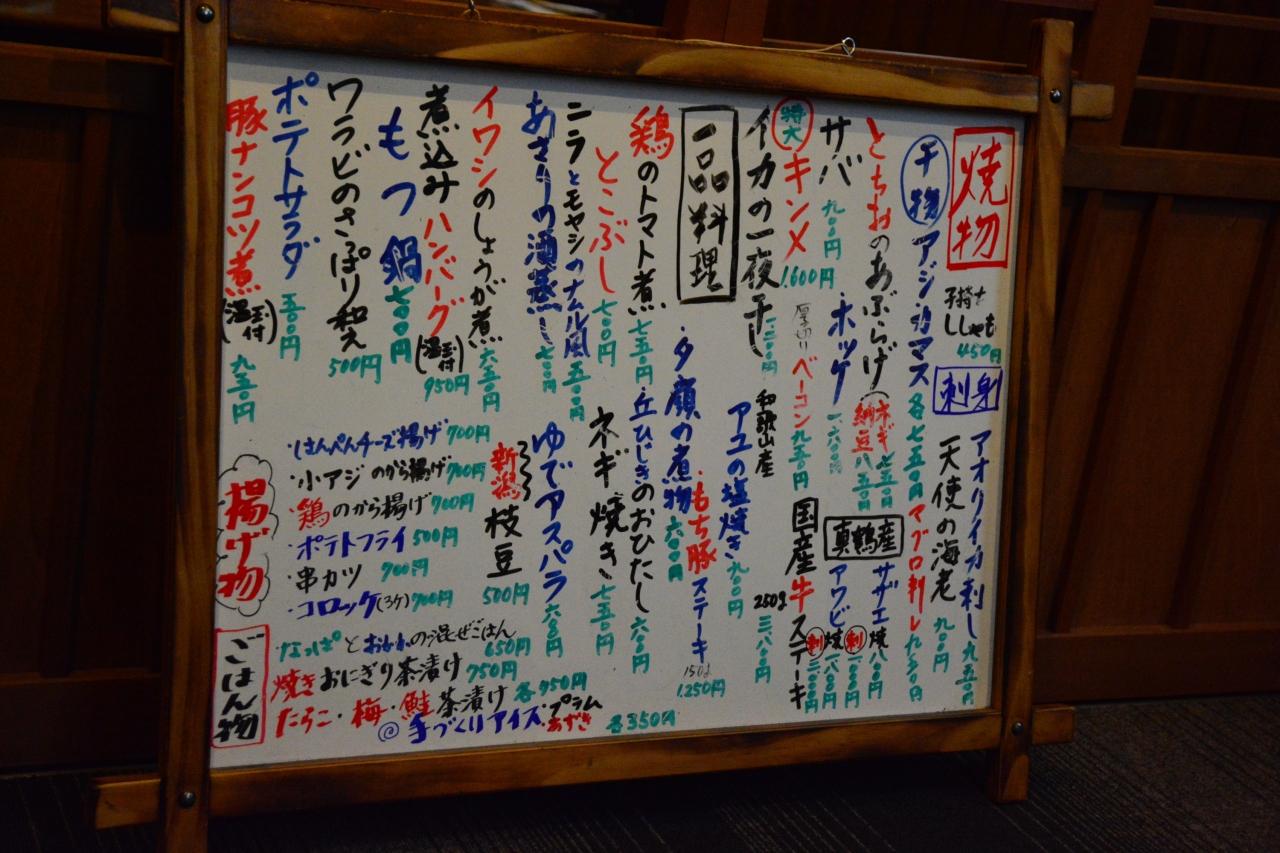 焼物
子持ち
ししゃも
450円
干物 アジ・カマス 各七五〇円
とちおのあぶらげ(ネギ七五〇円
納豆八五〇円
サバ 九〇〇円
・ホッケ 一、六〇〇円
特大 キンメ 1,600円
厚切りベーコン九五〇円
イカの一夜干し
和歌山産
アユの塩焼き九〇〇円
国産牛ステーキ
250g 三、八八〇円
もち豚ステーキ
150g
1,250円
真鶴産
サザエ 焼 八八〇円
刺
アワビ 焼
刺
刺身
アオリイカ刺し九五〇円
天使の海老 九〇〇円
マグロ刺し九五〇円
一品料理
鶏のトマト煮 七五〇円
・夕顔の煮物六〇〇円
とこぶし 七〇〇円
・丘ひじきのおひたし六〇〇円
ニラとモヤシのナムル風 五〇〇円
ネギ焼き 七五〇円
あさりの酒蒸し 七〇〇円
ゆでアスパラ 六〇〇円
イワシのしょうが煮 六五〇円
新潟 枝豆 500円
煮込みハンバーグ(温玉付) 950円
もつ鍋 七〇〇円
ワラビのさっぱり和え 500円
ポテトサラダ 五〇〇円
豚ナンコツ煮(温玉付) 九五〇円
揚げ物
・はんぺんチーズ揚げ 700円
・小アジのから揚げ 700円
・鶏のから揚げ 700円
・ポテトフライ 500円
・串カツ 700円
・コロッケ(3ケ) 700円
ごはん物
なっぱとおかかの混ぜごはん 650円
焼きおにぎり茶漬け 750円
たらこ・梅・鮭茶漬け 各750円
◎手づくりアイス・プラム
あずき 各350円